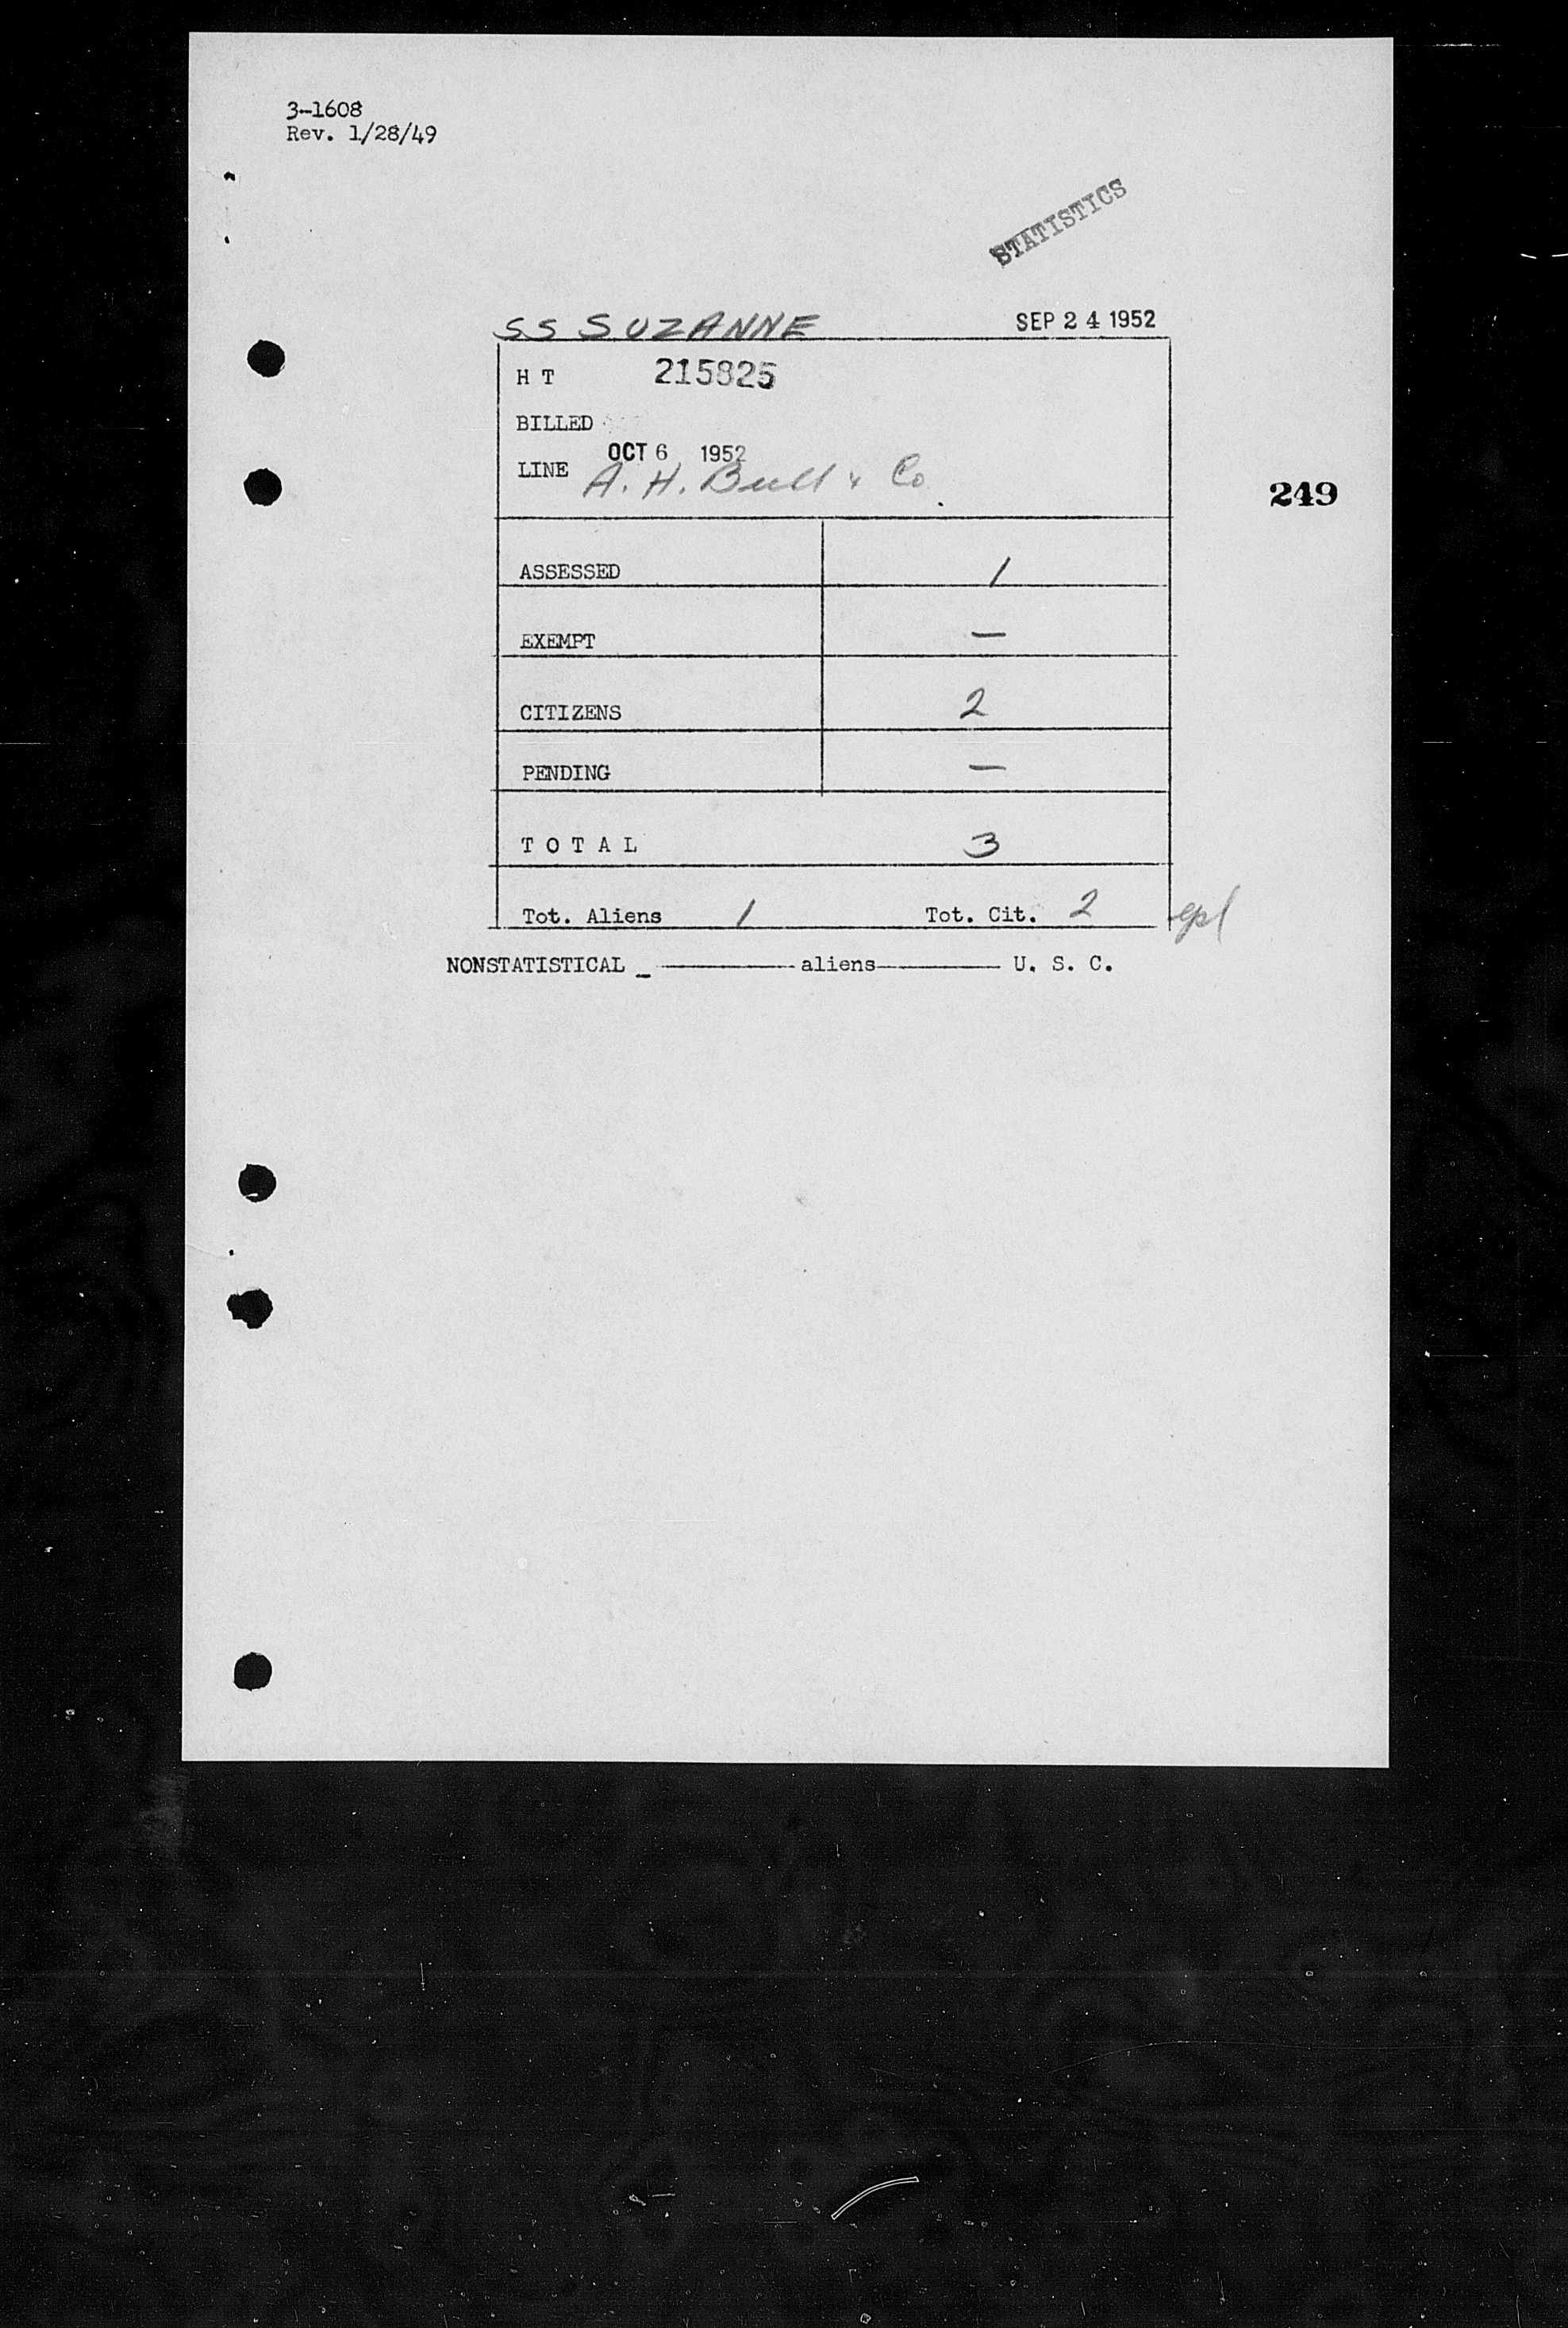 3-1608
Rev. 1/28/49
STATISTICS
SS SUZANNE SEP 24 1952
H T 215825
BILLED
OCT 6 1952
LINE A. H. Bull & Co.
249
ASSESSED 1
EXEMPT —
CITIZENS 2
PENDING —
T O T A L 3
Tot. Aliens 1 Tot. Cit. 2
NONSTATISTICAL _ ———— aliens———— U. S. C.